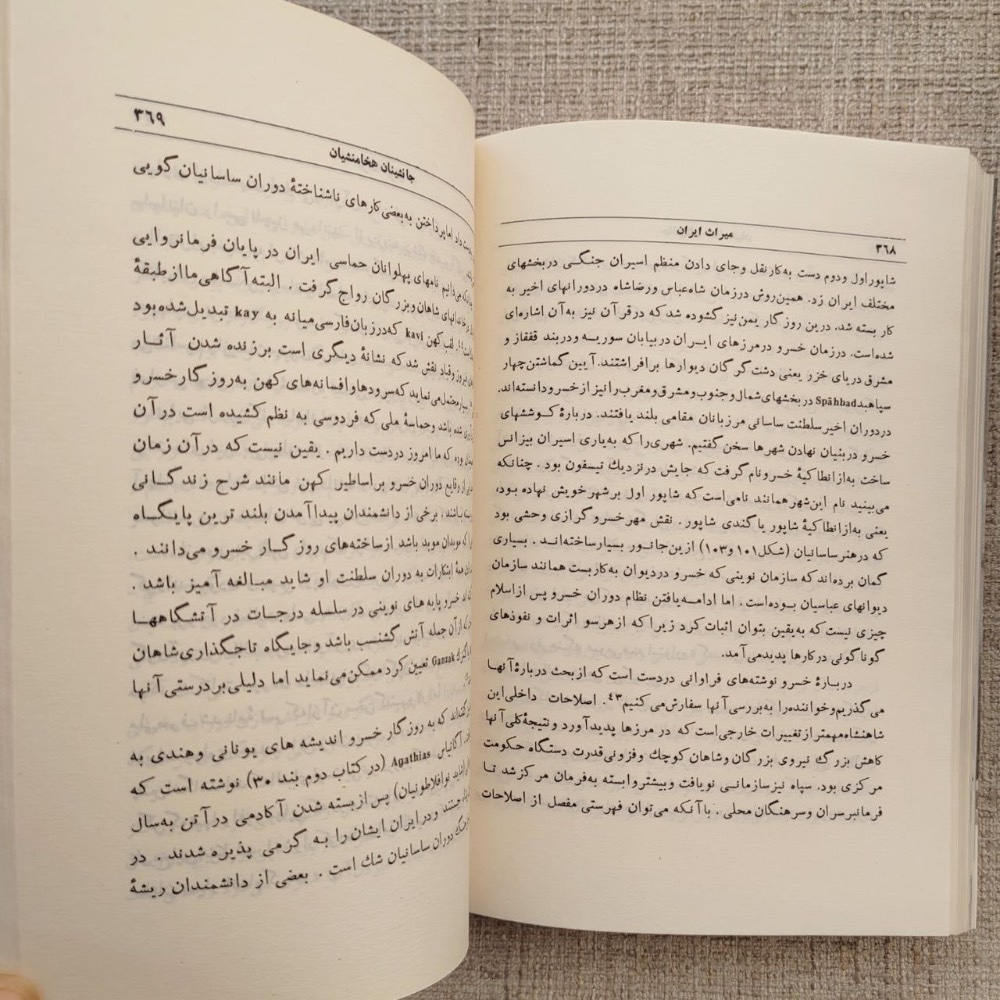 ۳۶۸
میراث ایران
شاپور اول و دوم دست به کار نقل و جای دادن منظم اسیران جنگی در بخشهای
مختلف ایران زد. همین روش در زمان شاه عباس و رضاشاه در دورانهای اخیر به
کار بسته شد. درین روزگار یمن نیز گشوده شد که در قرآن نیز به آن اشاره‌ای
شده است. در زمان خسرو در مرزهای ایران در بیابان سوریه و در بند قفقاز و
مشرق دریای خزر یعنی دشت گرگان دیوارها برافراشتند. آیین گماشتن چهار
سپاهبد Spāhbad در بخشهای شمال و جنوب و مشرق و مغرب را نیز از خسرو دانسته‌اند.
در دوران اخیر سلطنت ساسانی مرزبانان مقامی بلند یافتند. دربارهٔ کوششهای
خسرو در بنیان نهادن شهرها سخن گفتیم. شهری را که به یاری اسیران بیزانس
ساخت به از انطاکیهٔ خسرو نام گرفت که جایش در نزدیك تیسفون بود. چنانکه
می‌بینید نام این شهر همانند نامی است که شاپور اول بر شهر خویش نهاده بود،
یعنی به از انطاکیهٔ شاپور یا گندی شاپور. نقش مهر خسرو گرازی وحشی بود
که در هنر ساسانیان (شکل ۱۰۱ و ۱۰۳) ازین جانور بسیار ساخته‌اند. بسیاری
گمان برده‌اند که سازمان نوینی که خسرو در دیوان به کار بست همانند سازمان
دیوانهای عباسیان بوده است. اما ادامه یافتن نظام دوران خسرو پس از اسلام
چیزی نیست که به یقین بتوان اثبات کرد زیرا که از هر سو اثرات و نفوذهای
گوناگونی در کارها پدید می‌آمد.
دربارهٔ خسرو نوشته‌های فراوانی در دست است که از بحث دربارهٔ آنها
می‌گذریم و خواننده را به بررسی آنها سفارش می‌کنیم۴۳. اصلاحات داخلی این
شاهنشاه مهمتر از تغییرات خارجی است که در مرزها پدید آورد و نتیجهٔ کلی آنها
کاهش بزرگ نیروی بزرگان و شاهان کوچك و فزونی قدرت دستگاه حکومت
مرکزی بود. سپاه نیز سازمانی نو یافت و بیشتر وابسته به فرمان مرکز شد تا
فرمانبر سران و سرهنگان محلی. با آنکه می‌توان فهرستی مفصل از اصلاحات
۳۶۹
جانشینان هخامنشیان
داد، اما پرداختن به بعضی کارهای ناشناختهٔ دوران ساسانیان گویی
می‌دانیم نامهای پهلوانان حماسی ایران در پایان فرمانروایی
خاندانهای شاهان و بزرگان رواج گرفت. البته آگاهی ما از طبقهٔ
لقب کهن kavi که در زبان فارسی میانه به kay تبدیل شده بود
و قباد نقش شد که نشانهٔ دیگری است بر زنده شدن آثار
محتمل می‌نماید که سرودها و افسانه‌های کهن به روزگار خسرو
شده باشد و حماسهٔ ملی که فردوسی به نظم کشیده است در آن
بوده که ما امروز در دست داریم. یقین نیست که در آن زمان
از وقایع دوران خسرو بر اساطیر کهن مانند شرح زندگانی
باشند، برخی از دانشمندان پیدا آمدن بلند ترین پایگاه
که موبدان موبد باشد از ساخته‌های روزگار خسرو می‌دانند.
همهٔ ابتکارات به دوران سلطنت او شاید مبالغه آمیز باشد.
خسرو پایه‌های نوینی در سلسله درجات در آتشگاهها
از آن جمله آتش گشنسب باشد و جایگاه تاجگذاری شاهان
Ganzak تعیین کرد ممکن می‌نماید اما دلیلی بر درستی آنها
که به روزگار خسرو اندیشه های یونانی و هندی به
آگاثیاس Agathias (در کتاب دوم بند ۳۰) نوشته است که
نوافلاطونیان) پس از بسته شدن آکادمی در آتن به سال
و در ایران ایشان را به گرمی پذیره شدند. در
دوران ساسانیان شك است. بعضی از دانشمندان ریشهٔ